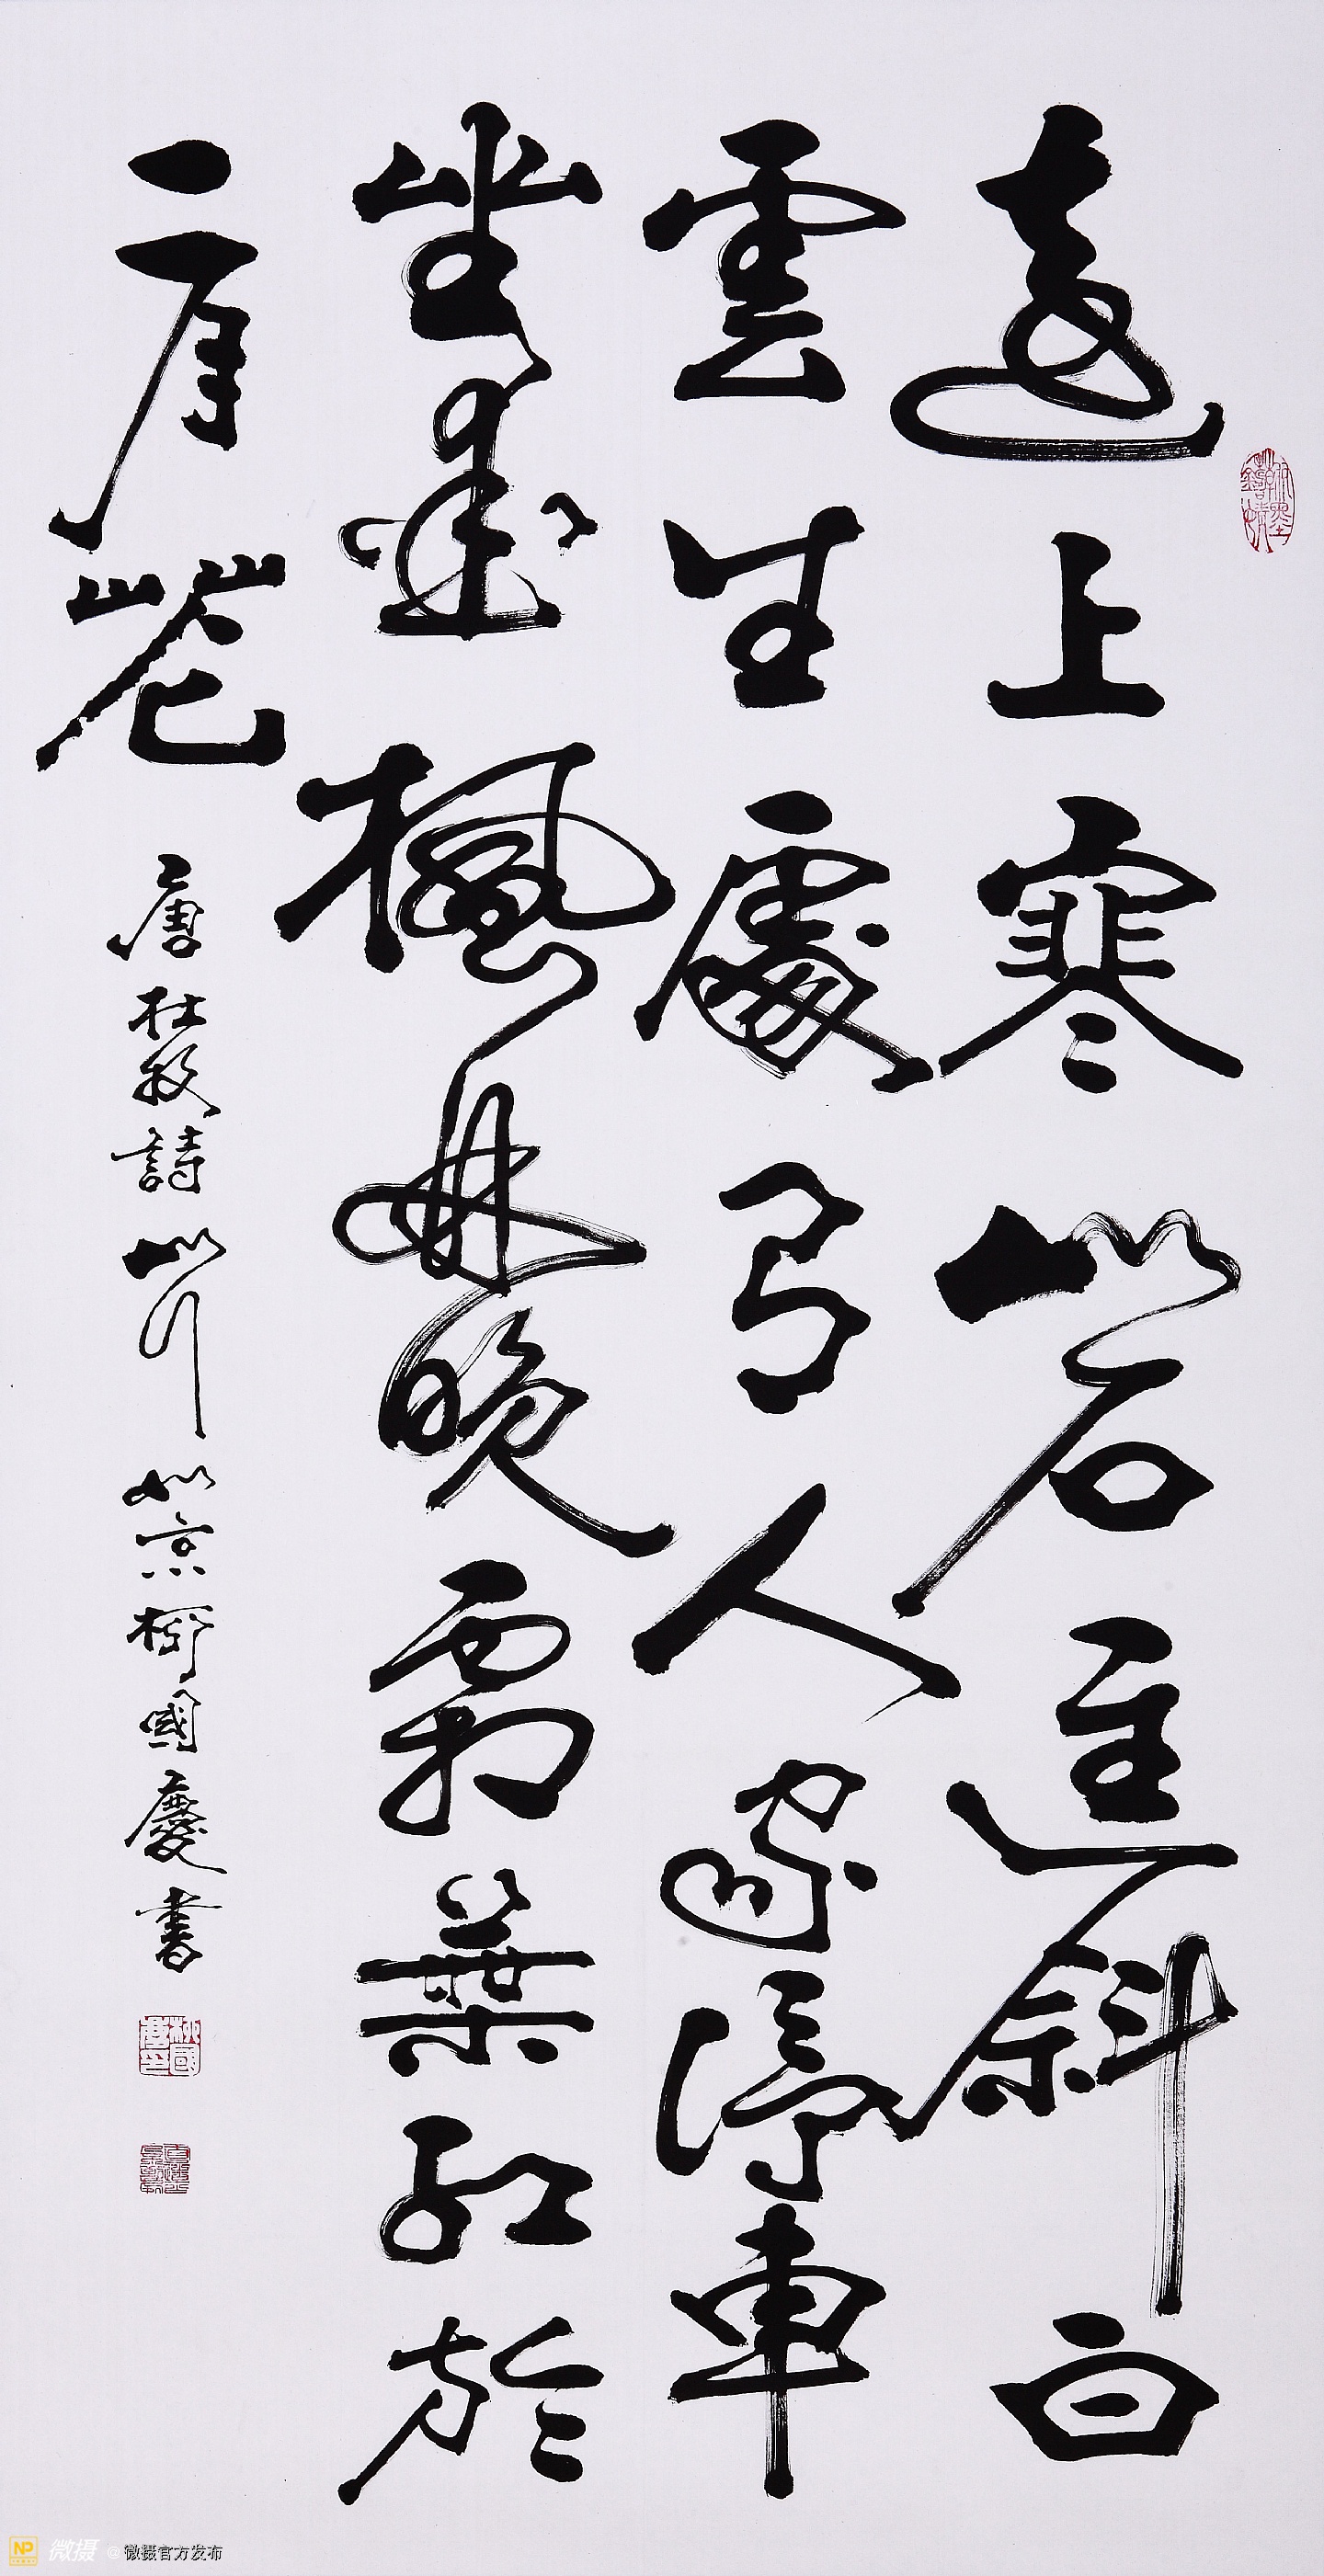 遠上寒山石逕斜白
雲生處有人家停車
坐愛楓林晚霜葉紅於
二月花
唐杜牧詩山行 北京柳國慶書
NP 微摄 @微摄官方发布